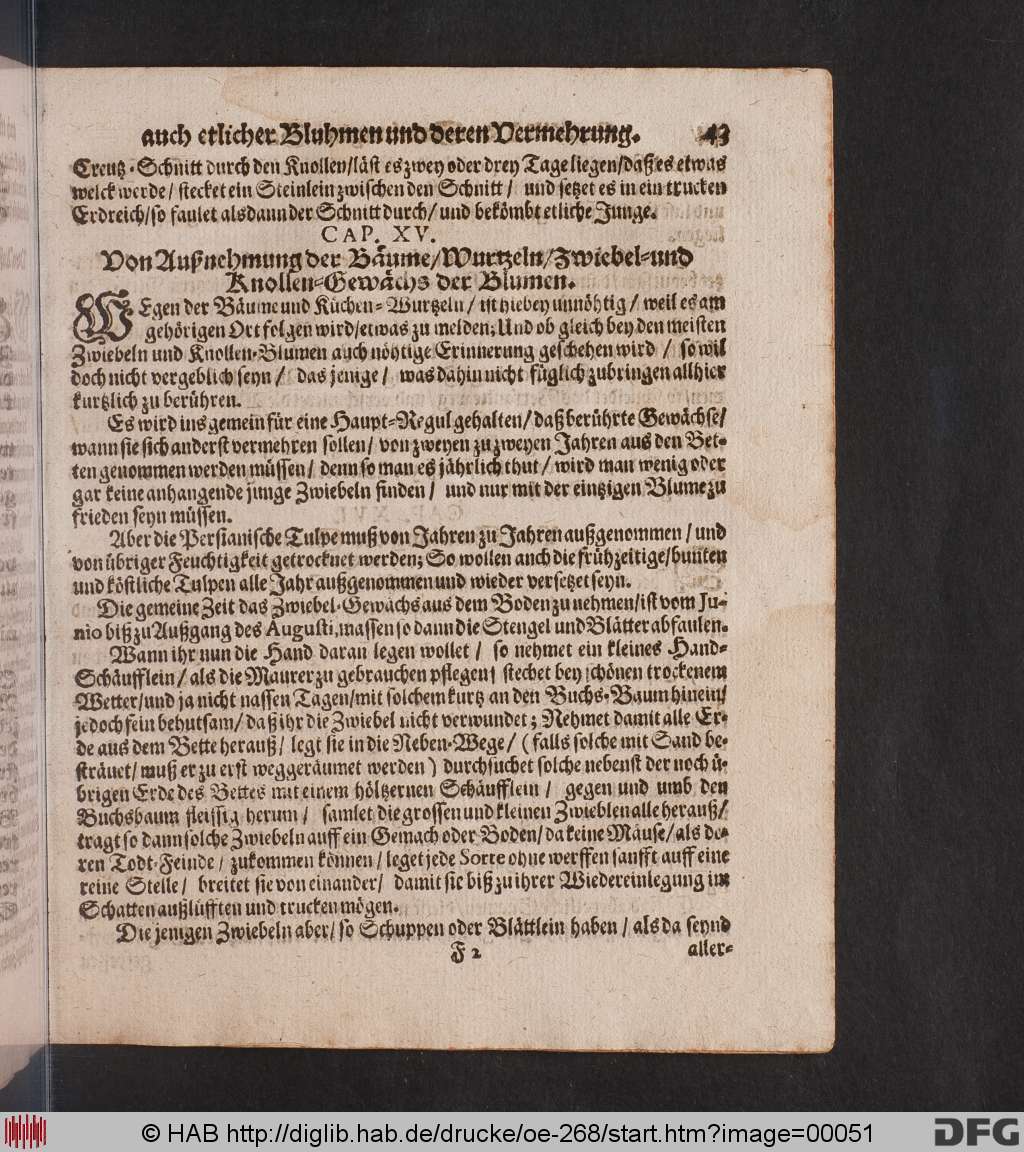 auch etlicher Bluhmen und deren Vermehrung. 43
Creutz-Schnitt durch den Knollen/läst es zwey oder drey Tage liegen/daß es etwas
welck werde/ stecket ein Steinlein zwischen den Schnitt/ und setzet es in ein trucken
Erdreich/so faulet alsdann der Schnitt durch/ und bekömbt etliche Junge.
CAP. XV.
Von Außnehmung der Bäume/Wurtzeln/Zwiebel-und
Knollen-Gewächs der Blumen.
WEgen der Bäume und Küchen-Wurtzeln/ ist hiebey unnöhtig/ weil es am
gehörigen Ort folgen wird/etwas zu melden; Und ob gleich bey den meisten
Zwiebeln und Knollen-Blumen auch nöhtige Erinnerung geschehen wird/ so wil
doch nicht vergeblich seyn/ das jenige/ was dahin nicht füglich zubringen allhier
kurtzlich zu berühren.
Es wird ins gemein für eine Haupt-Regul gehalten/daß berührte Gewächse/
wann sie sich anderst vermehren sollen/ von zweyen zu zweyen Jahren aus den Bet-
ten genommen werden müssen/ denn so man es jährlich thut/ wird man wenig oder
gar keine anhangende junge Zwiebeln finden/ und nur mit der eintzigen Blume zu
frieden seyn müssen.
Aber die Persianische Tulpe muß von Jahren zu Jahren außgenommen/ und
von übriger Feuchtigkeit getrocknet werden; So wollen auch die frühzeitige/bunten
und köstliche Tulpen alle Jahr außgenommen und wieder versetzet seyn.
Die gemeine Zeit das Zwiebel-Gewächs aus dem Boden zu nehmen/ist vom Ju-
nio biß zu Außgang des Augusti, massen so dann die Stengel und Blätter abfaulen.
Wann ihr nun die Hand daran legen wollet/ so nehmet ein kleines Hand-
Schäufflein/ als die Maurer zu gebrauchen pflegen/ stechet bey schönen trockenem
Wetter/und ja nicht nassen Tagen/mit solchem kurtz an den Buchs-Baum hinein/
jedoch fein behutsam/ daß ihr die Zwiebel nicht verwundet; Nehmet damit alle Er-
de aus dem Bette herauß/ legt sie in die Neben-Wege/ (falls solche mit Sand be-
sträuet/ muß er zu erst weggeräumet werden) durchsuchet solche nebenst der noch ü-
brigen Erde des Bettes mit einem höltzernen Schäufflein/ gegen und umb den
Buchsbaum fleissig herum/ samlet die grossen und kleinen Zwieblen alle herauß/
tragt so dann solche Zwiebeln auff ein Gemach oder Boden/ da keine Mäuse/als de-
ren Todt-Feinde/ zukommen können/ leget jede Sorte ohne werffen sanfft auff eine
reine Stelle/ breitet sie von einander/ damit sie biß zu ihrer Wiedereinlegung im
Schatten außlüfften und trucken mögen.
Die jenigen Zwiebeln aber/ so Schuppen oder Blättlein haben/ als da seynd
F 2 aller-
© HAB http://diglib.hab.de/drucke/oe-268/start.htm?image=00051
DFG